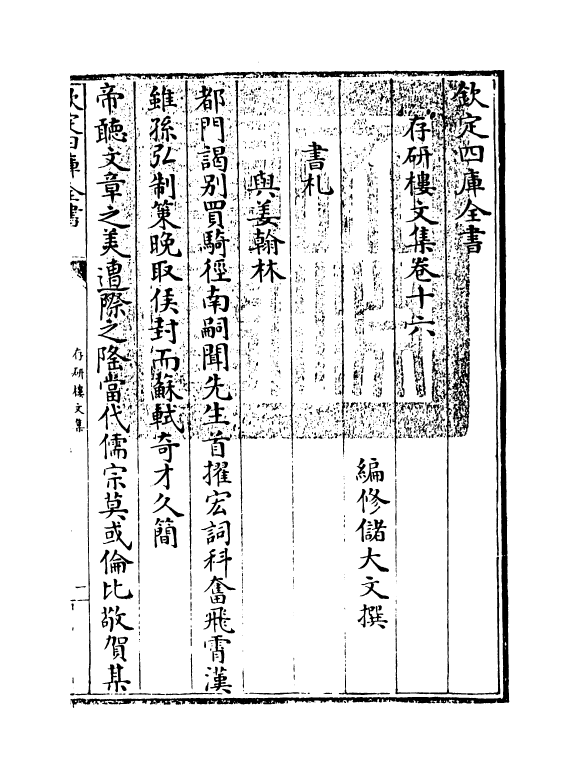 欽定四庫全書
存研樓文集卷十六
編修儲大文撰
書札
與姜翰林
都門謁別買騎徑南嗣聞先生首擢宏詞科奮飛霄漢
雖孫弘制策晚取侯封而蘇軾奇才久簡
帝聽文章之美遭際之隆當代儒宗莫或倫比敬賀某
欽定四庫全書
存研樓文集
一